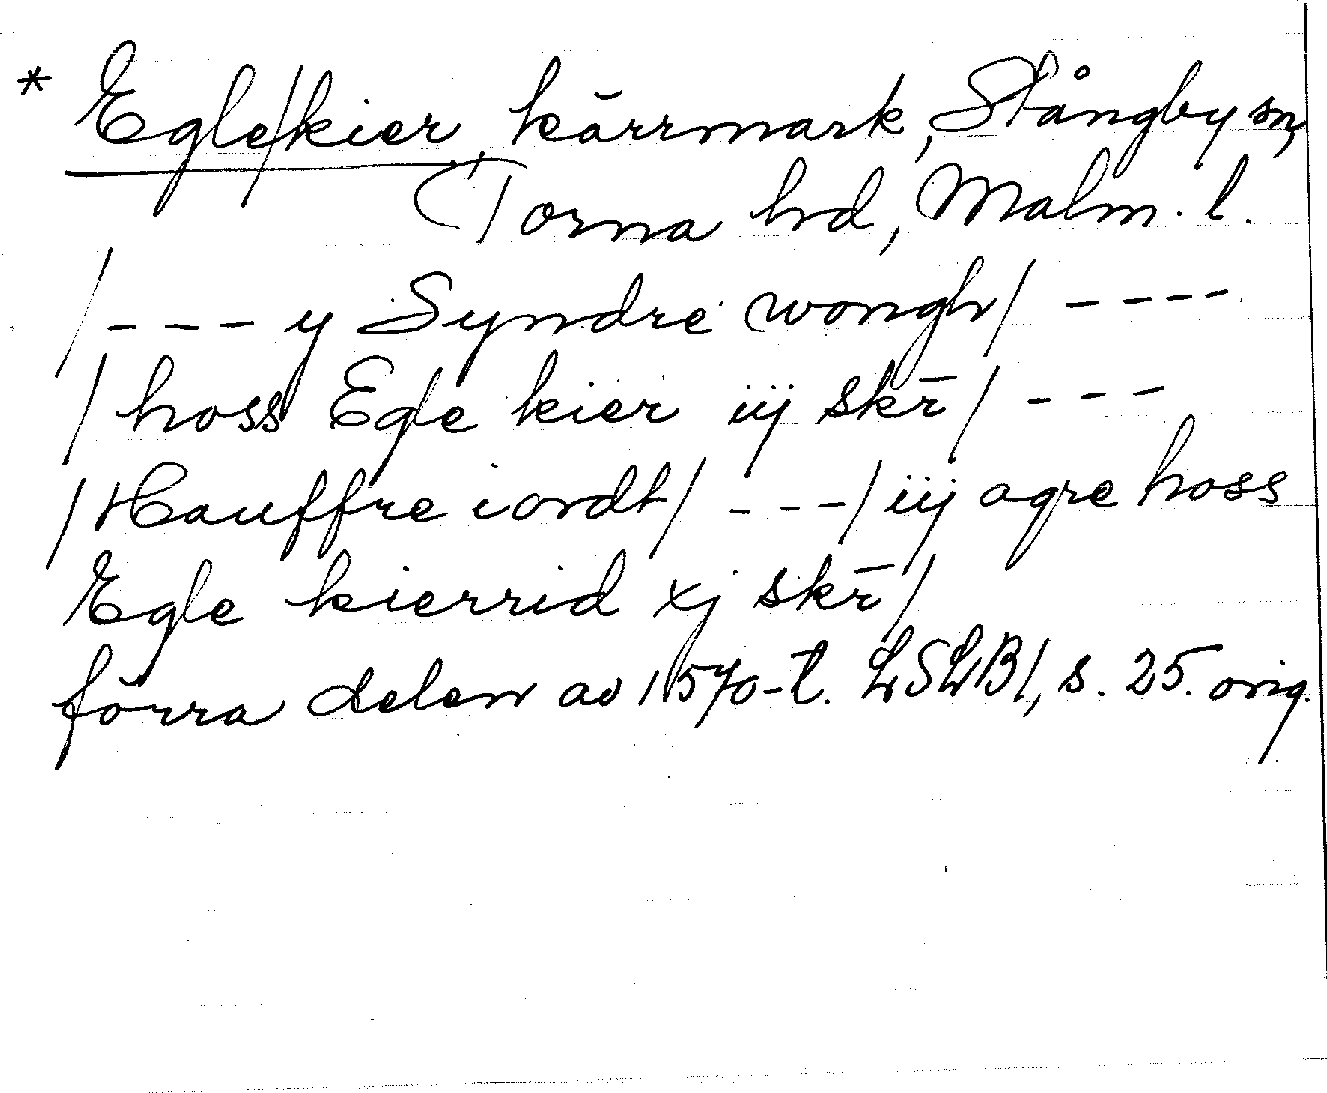 * Egle/kier, kärrmark, Stångby sn,
Torna hd, Malm. l.
/--- y Syndre wongh/ ----
/hoss Egle kier iij skr̄/ ---
/Hauffre iordt/ ---/iij agre hoss
Egle kierrid xj skr̄/
förra delen av 1570-t. LSLB1, s. 25. orig.